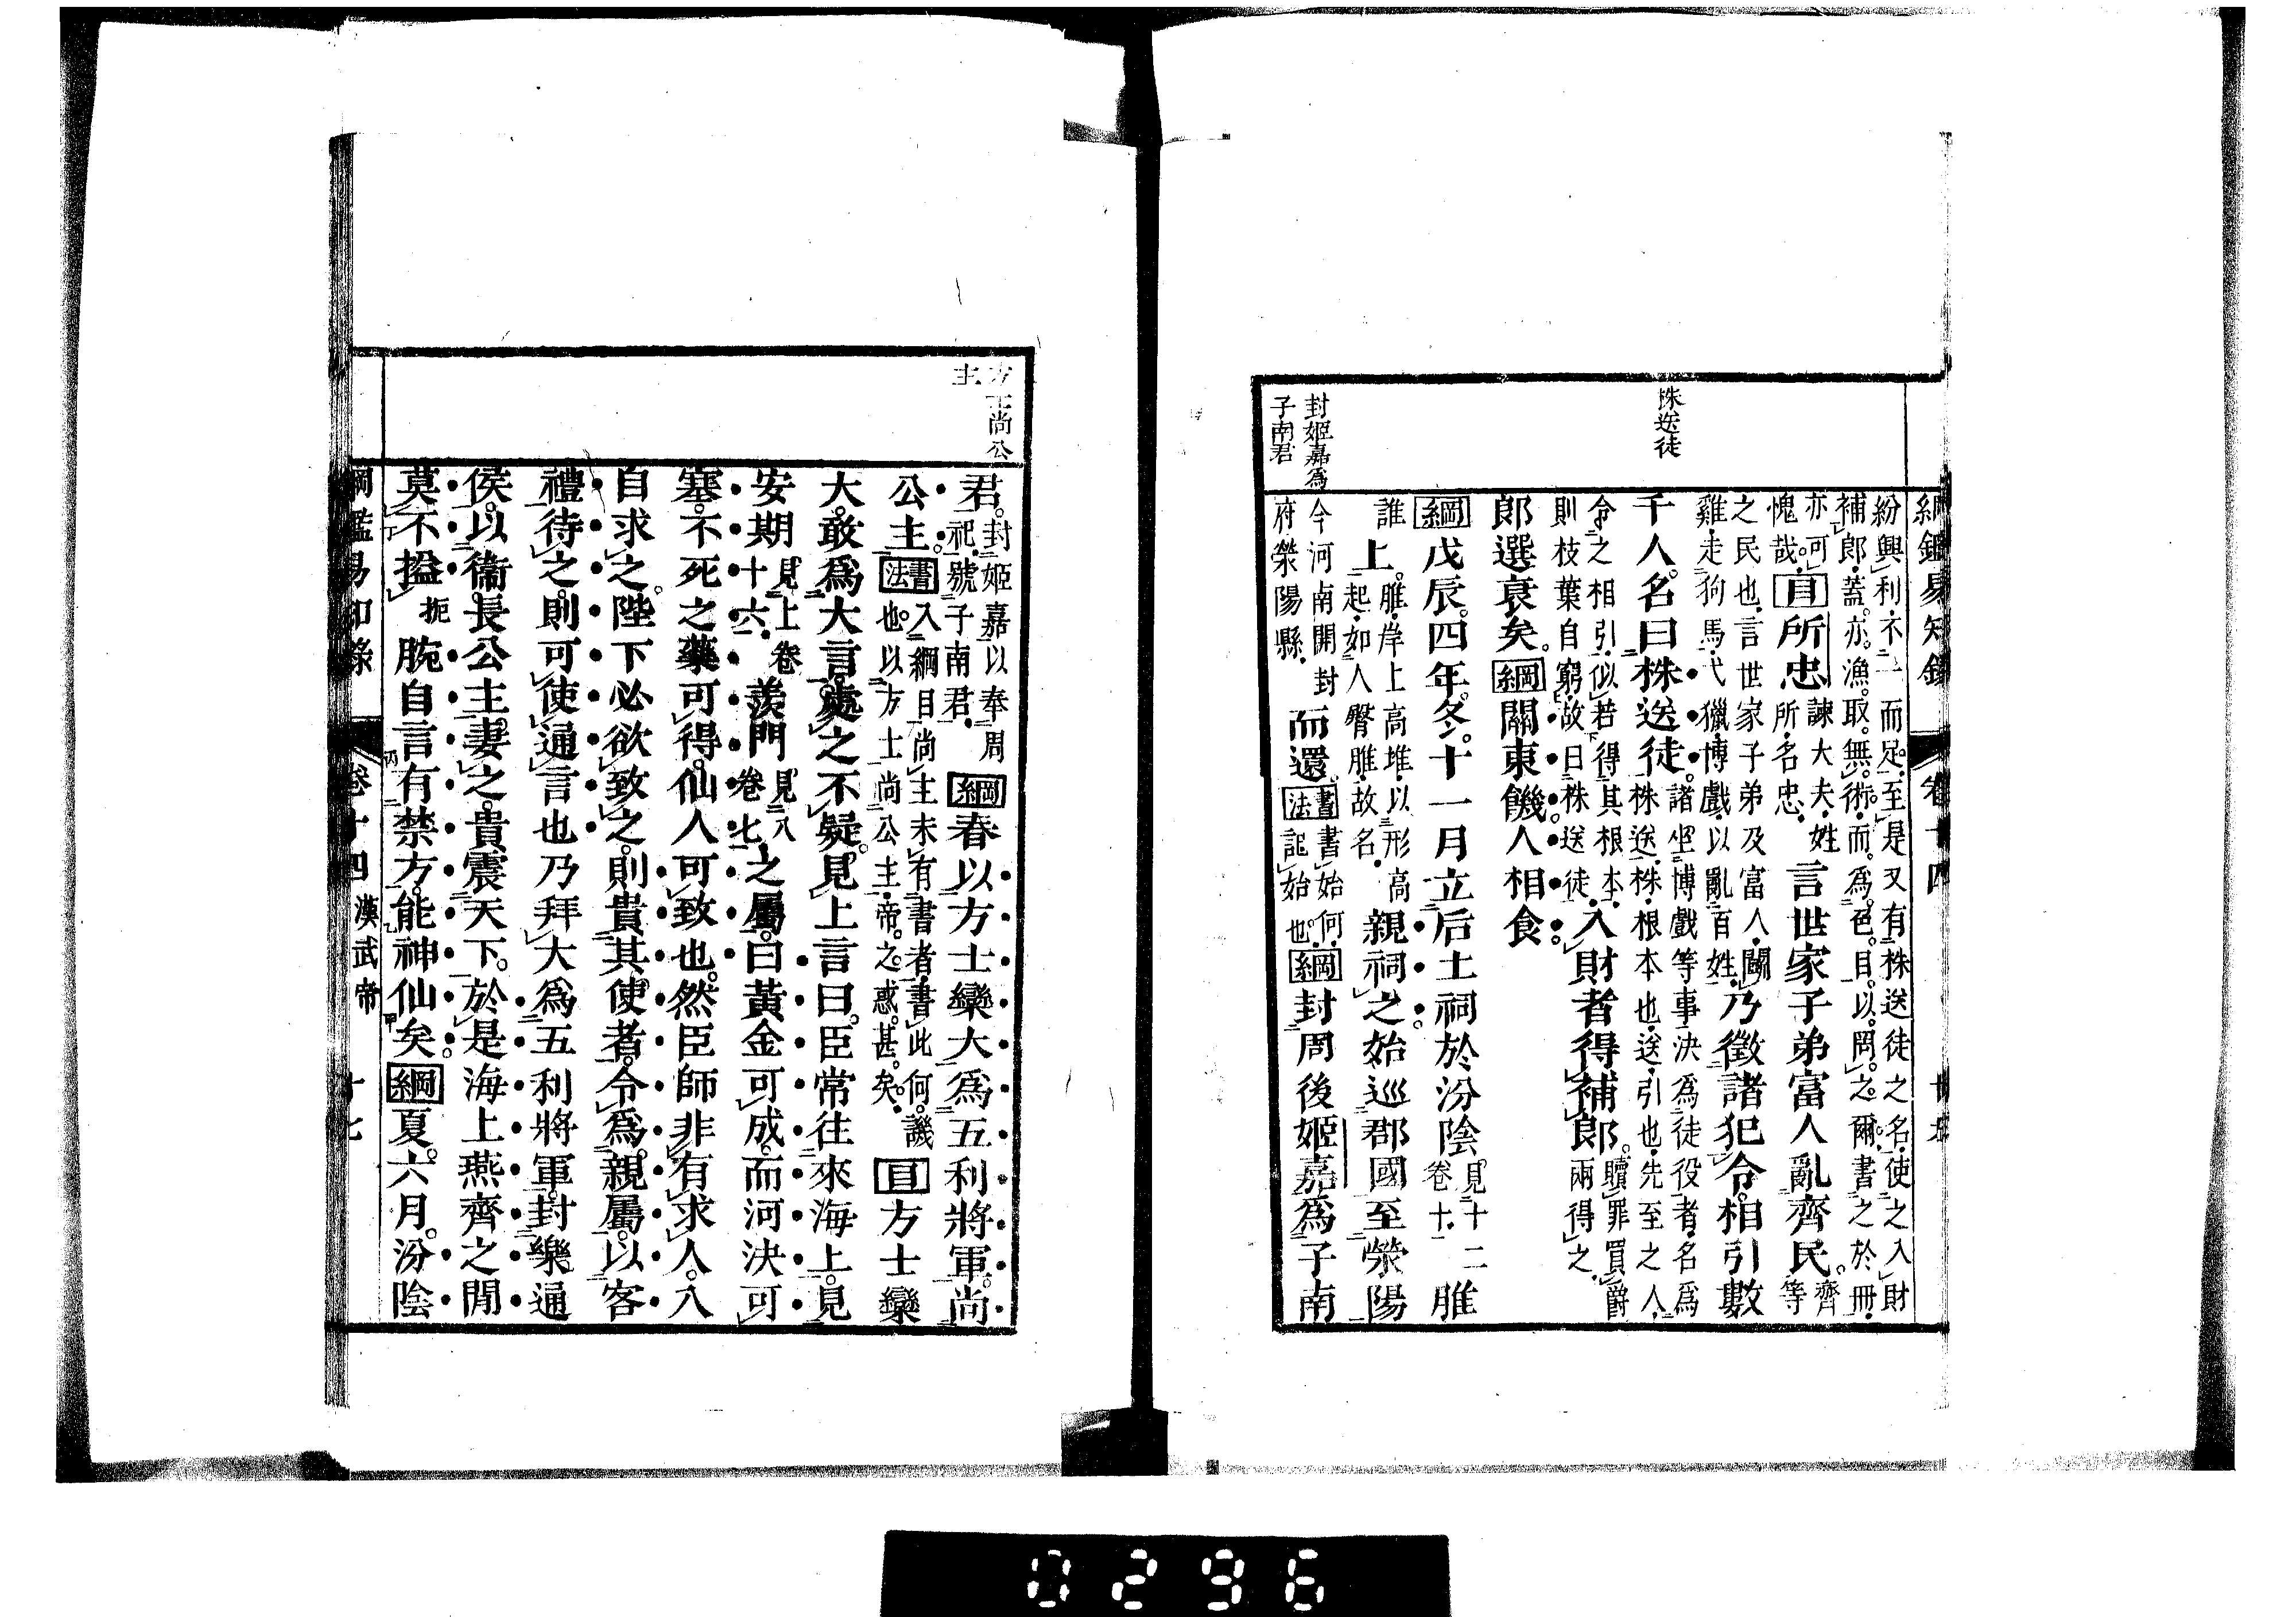 綱鑑易知錄 卷十四
株送徒
封姬嘉爲
子南君
紛興利不一而足至是又有株送徒之名使之入財
補郎蓋亦漁取無術而爲色目以罔之爾書之於冊
亦可
愧哉 目 所忠 諫大夫姓
所名忠 言世家子弟富人亂齊民 齊
等
之民也言世家子弟及富人鬭
雞走狗馬弋獵博戲以亂百姓 乃徵諸犯令相引數
千人名曰株送徒 諸坐博戲等事決爲徒役者名爲
株送株根本也送引也先至之人
令之相引似若得其根本
則枝葉自窮故曰株送徒 入財者得補郎 贖罪買爵
兩得之
郎選衰矣 綱 關東饑人相食
綱 戊辰四年冬十一月立后土祠於汾陰 見十二
卷十一 脽
誰 上 脽岸上高堆以形高
起如人臀脽故名 親祠之始巡郡國至滎陽
今河南開封
府滎陽縣 而還 書法 書始何
記始也 綱 封周後姬嘉爲子南
方士尚公
主
君 封姬嘉以奉周
祀號子南君 綱 春以方士欒大爲五利將軍尚
公主 書法 入綱目尚主未有書者書此何譏
也以方士尚公主帝之惑甚矣 目 方士欒
大敢爲大言處之不疑見上言曰臣常往來海上見
安期 見上卷
十六 羨門 見八
卷七 之屬曰黃金可成而河決可
塞不死之藥可得仙人可致也然臣師非有求人人
自求之陛下必欲致之則貴其使者令爲親屬以客
禮待之則可使通言也乃拜大爲五利將軍封樂通
侯以衞長公主妻之貴震天下於是海上燕齊之閒
莫不搤 扼 腕自言有禁方能神仙矣 綱 夏六月汾陰
綱鑑易知錄 卷十四 漢武帝 十七
0296